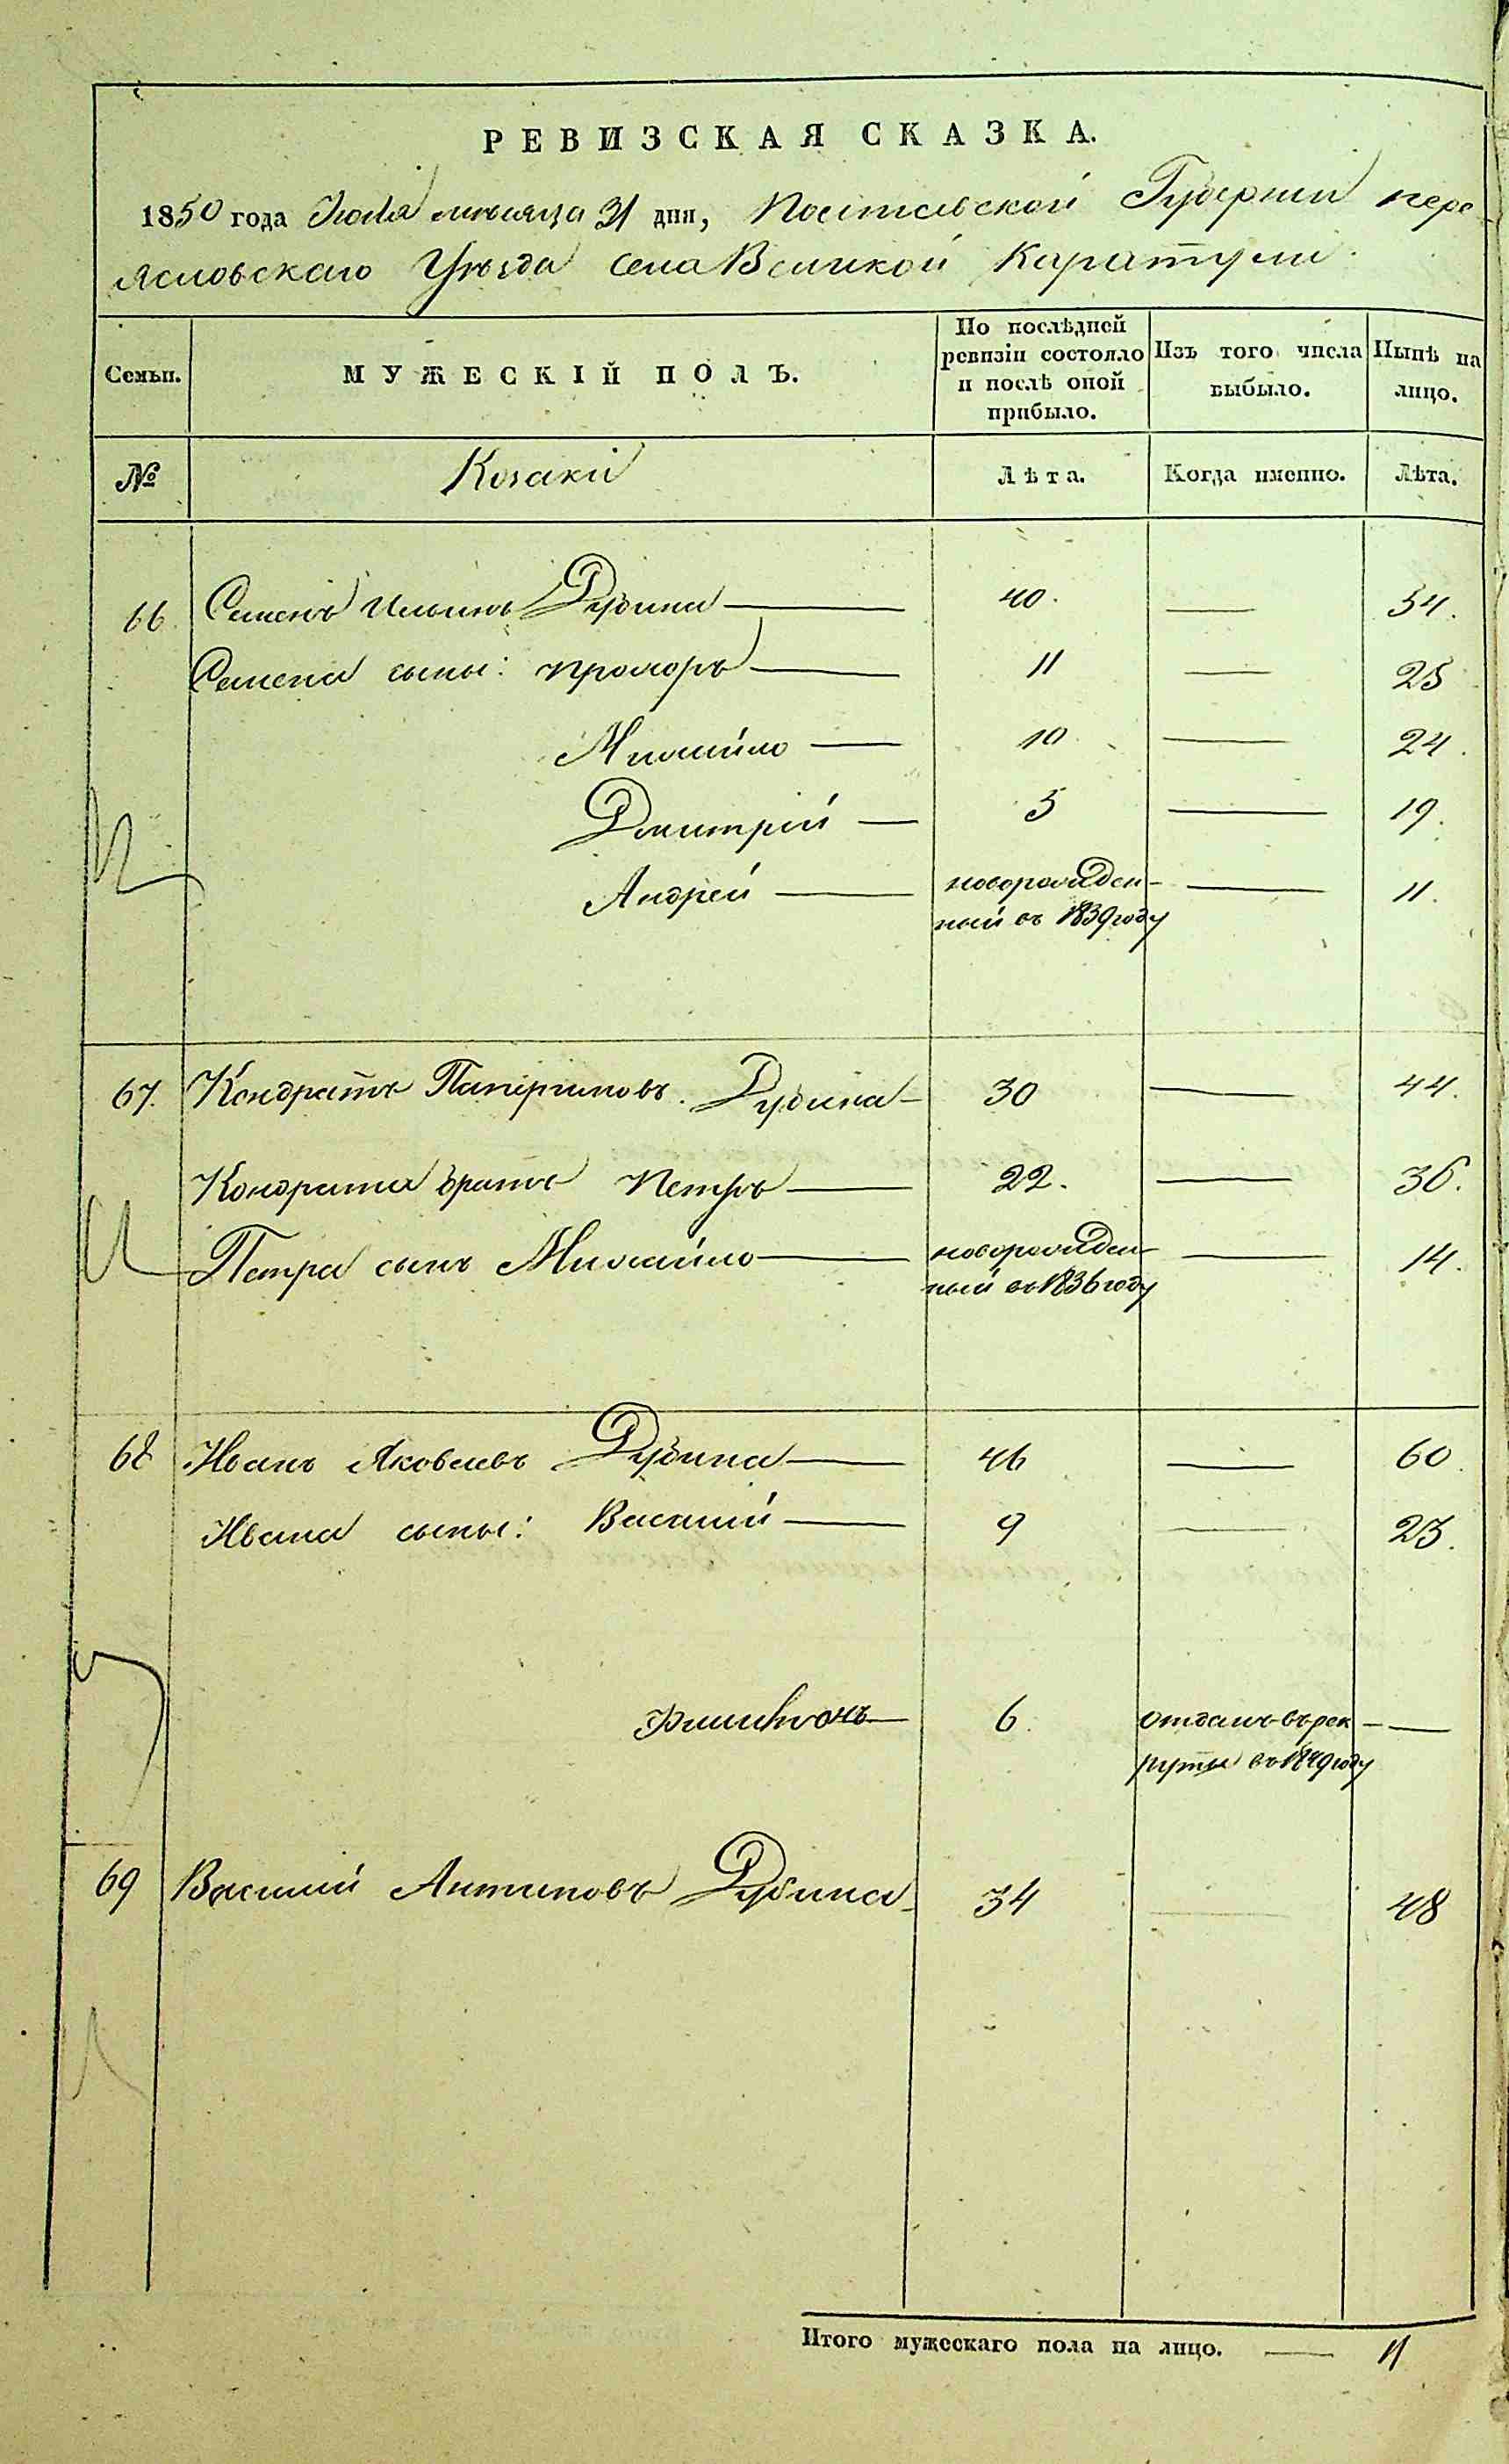 РЕВИЗСКАЯ СКАЗКА.
1850 года Июля месяца 31 дня, Полтавской Губернии пере-
яславскаго Уѣзда села Великой Каратули.
Семьи. МУЖЕСКІЙ ПОЛЪ. По послѣдней ревизіи состояло и послѣ оной прибыло. Изъ того числа выбыло. Нынѣ на лицо.
№ Козаки Лѣта. Когда именно. Лѣта.
66 Семенъ Ильинъ Дубина — 40. — 54.
Семена сыны: Прохоръ — 11 — 25
Михайло — 10 — 24.
Дмитрій — 5 — 19.
Андрей — новорожден-
ный въ 1839 году — 11.
67. Кондратъ Дубина — 30 — 44.
Кондрата братъ Петръ — 22. — 36.
Петра сынъ Михайло — новорожден-
ный въ 1836 году — 14.
68 Иванъ Яковлевъ Дубина — 46 — 60.
Ивана сыны: Василій — 9 — 23.
Филимонъ — 6. отданъ въ рек-
руты въ 1849 году —
69 Василий Антиповъ Дубина — 34 — 48
Итого мужескаго пола на лицо. — 11